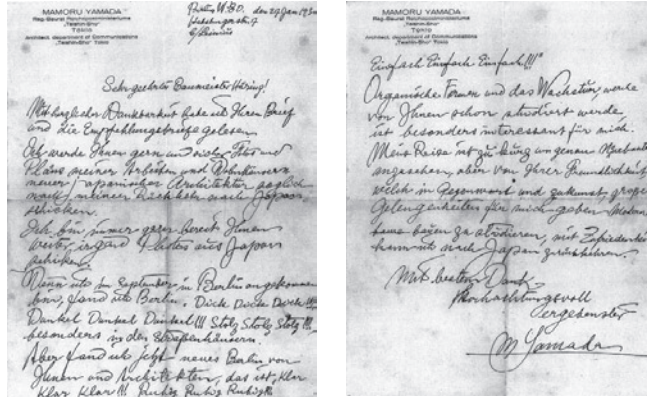 MAMORU YAMADA
Reg-Baurat Reichspostministeriums
"Teishin-Sho"
TOKIO
Architect, department of Communications
"Teishin-Sho" Tokio
Berlin W.30. den 27 Jan 193
Sehr geehrter Baumeister Häring!
Mit herzlicher Dankbarkeit habe ich Ihren Brief
und die Empfehlungsbriefe gelesen.
Ich werde Ihnen gern
Pläne meiner Arbeiten und
neuer japanischer Architektur
nach meiner Rückkehr nach Japan,
schicken.
Ich bin immer gern bereit Ihnen
weiter, irgend Photos aus Japan
schicken.
Wenn ich im September in Berlin angekommen
bin, fand ich Berlin, Dick Dick Dick !!!
Dunkel Dunkel Dunkel !!! Stolz Stolz Stolz !!!,
besonders in den Straßenhäusern.
Aber fand ich jetzt neues Berlin von
Ihnen und Architekten, das ist, Klar
Klar Klar !!! Ruhig Ruhig Ruhig !!!
MAMORU YAMADA
Reg-Baurat Reichspostministeriums
"Teishin-Sho"
TOKIO
Architect, department of Communications
"Teishin-Sho" Tokio
Einfach Einfach Einfach !!!"
Organische Formen und das Wachstum, werde
von Ihnen schon studiert werde,
ist besonders interessant für mich.
Meine Reise ist zu kurz um genau
angesehen, aber von Ihrer Freundlichkeit
welch in Gegenwart und zukunft, große
Gelegenheiten für mich geben
bauen zu studieren, mit Zufriedenheit
kann ich nach Japan zurückkehren.
Mit bestem Dank,
Hochachtungsvoll
ergebenster
M Yamada